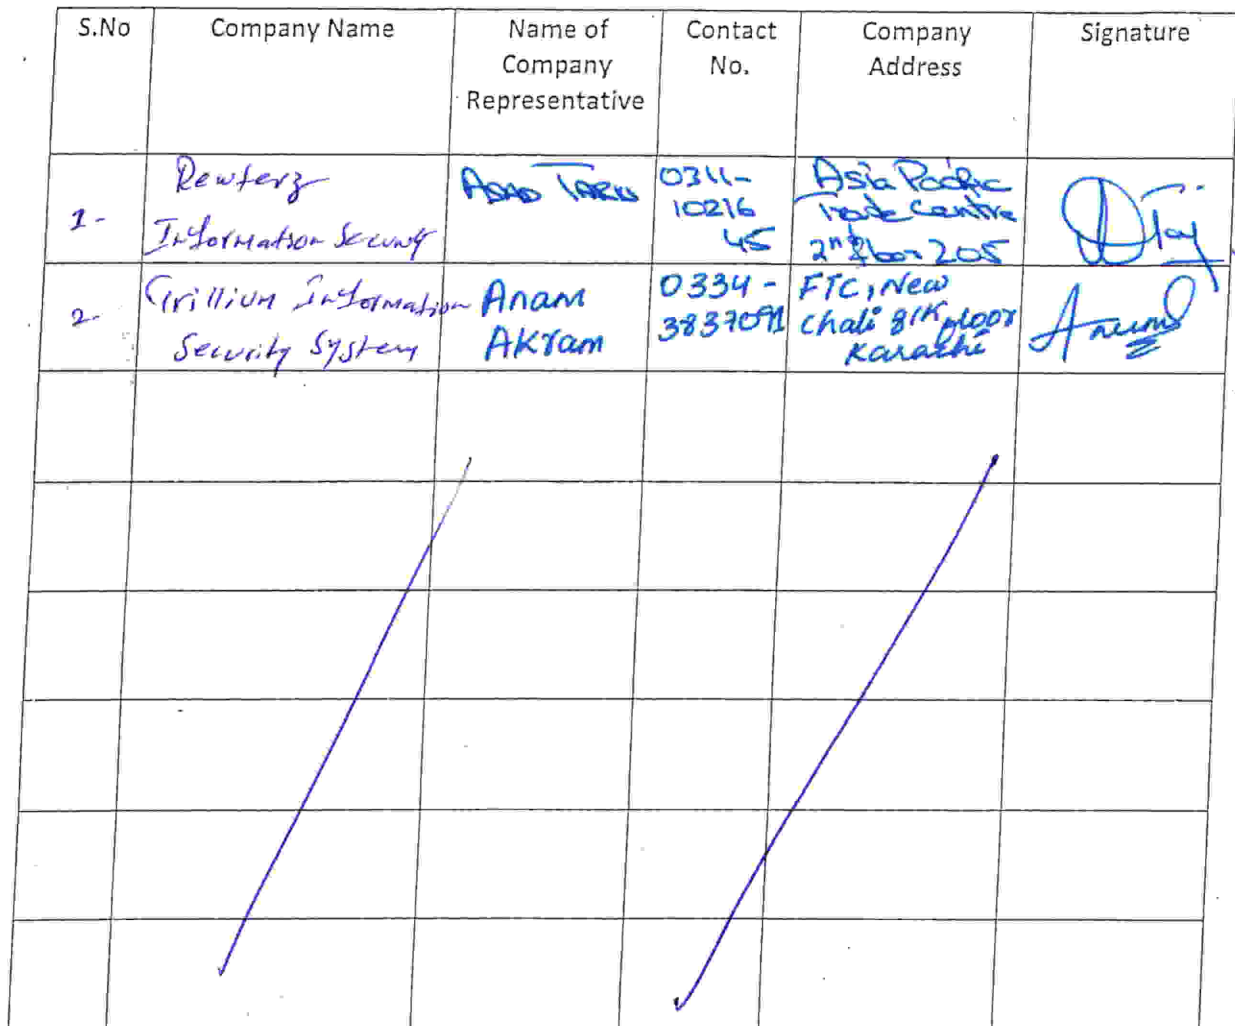 S.No Company Name Name of Company Representative Contact No. Company Address Signature
1- Rewterz Information Security Asad 0311-1021645 Asia Pacific Trade Centre 2nd floor 205
2- Trillium Information Security System Anam Akram 0334-3837091 FTC, New Chali floor Karachi